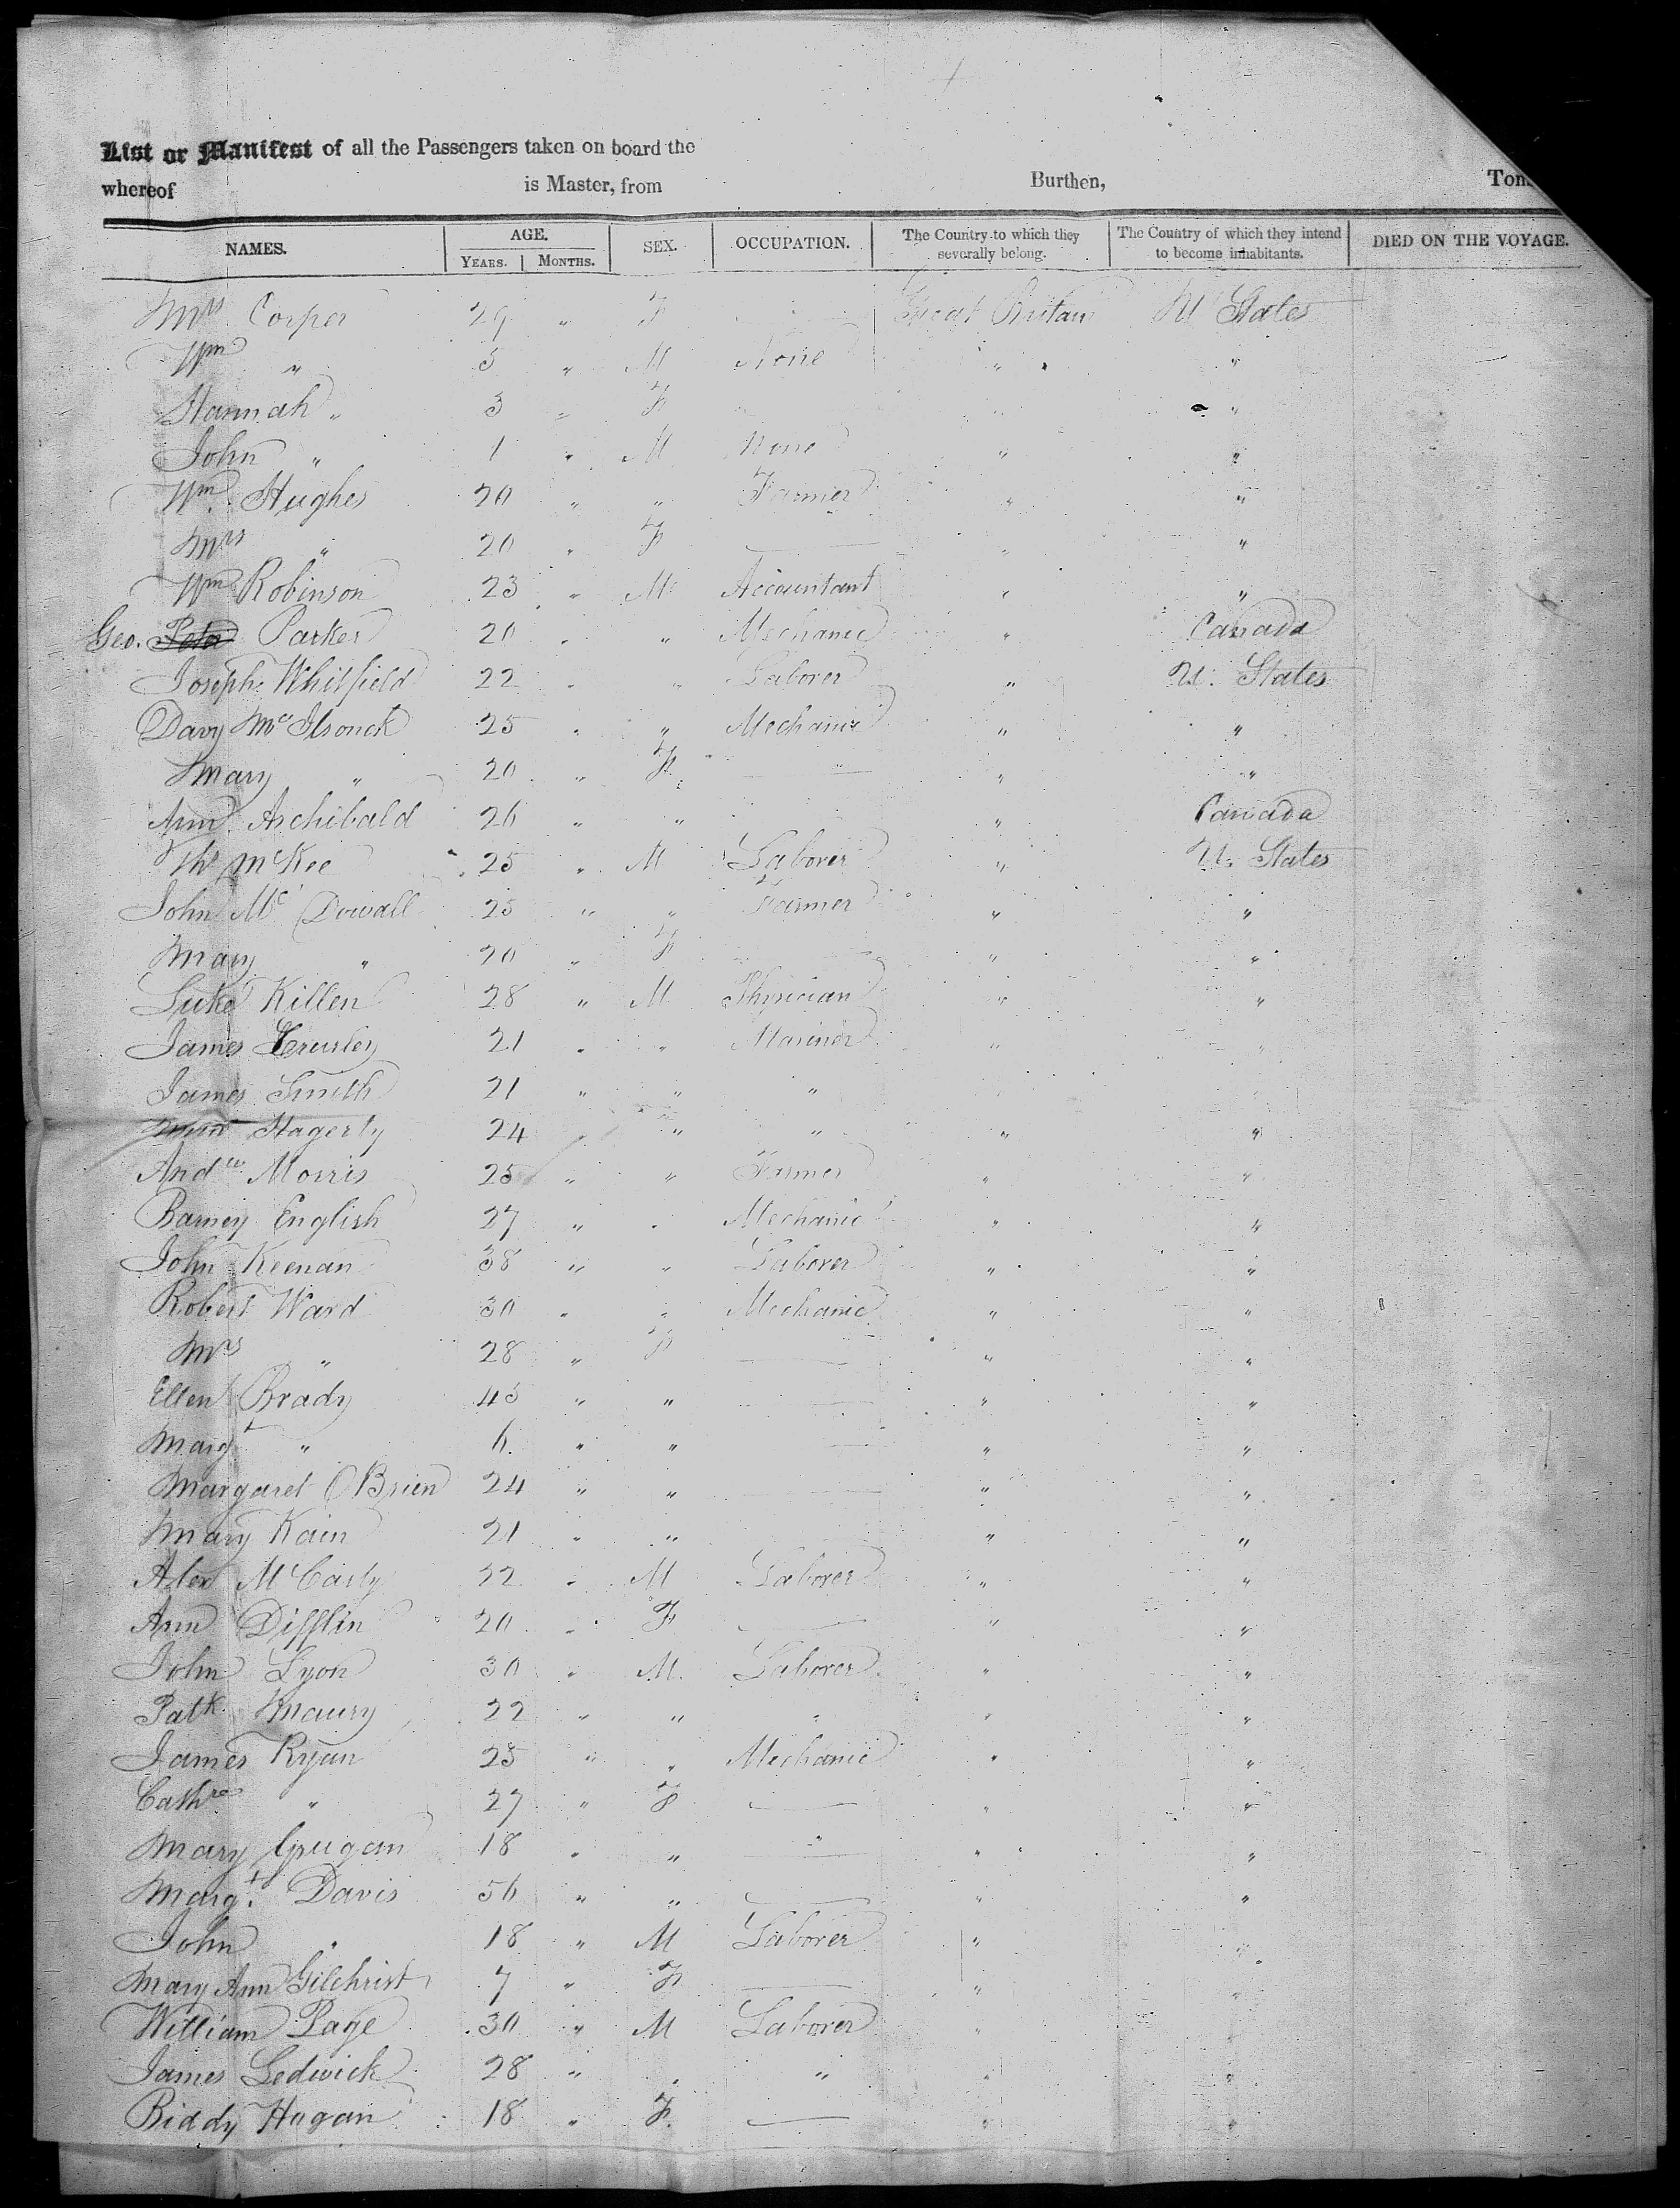 List or Manifest of all the Passengers taken on board the
whereof is Master, from Burthen, Tons
NAMES. AGE. SEX. OCCUPATION. The Country to which they severally belong. The Country of which they intend to become inhabitants. DIED ON THE VOYAGE.
YEARS. MONTHS.
Mrs Corper 29 " F Great Britain U States
Wm " 5 " M None " "
Hannah " 3 " F " "
John " 1 " M None " "
Wm Hughes 20 " " Farmer " "
Mrs " 20 " F — " "
Wm Robinson 23 " M Accountant " "
Geo. Peter Parker 20 " " Mechanic " Canada
Joseph Whitfield 22 " " Laborer " U. States
Davy Mc 25 " " Mechanic " "
Mary " 20 " F — " "
Ann Archibald 26 " " " Canada
Ths McKee 25 " M Laborer " U. States
John Mc Dowall 25 " " Farmer " "
Mary " 20 " F " "
Luke Killen 28 " M Physician " "
James 21 " " Mariner " "
James Smith 21 " " " " "
Hagerty 24 " " " " "
Andw Morris 25 " " Farmer " "
Barney English 27 " " Mechanic " "
John Keenan 38 " " Laborer " "
Robert Ward 30 " " Mechanic " "
Mrs " 28 " F — " "
Ellen Brady 45 " " — " "
Margt " 6 " " — " "
Margaret OBrien 24 " " — " "
Mary Kain 21 " " " "
Alex McCarty 22 " M Laborer " "
Ann Difflin 20 " F — " "
John Lyon 30 " M. Laborer " "
Patk. Maury 22 " " " " "
James Ryan 25 " " Mechanic " "
Cathne " 27 " F — " "
Mary Grugan 18 " " — " "
Margt. Davis 56 " " — " "
John " 18 " M Laborer " "
Mary Ann Gilchrist 7 " F — " "
William Page 30 " M Laborer " "
James Ledwick 28 " " " " "
Biddy Hagan 18 " F. — " "